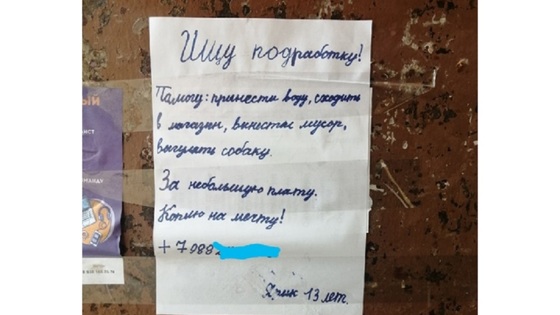 Ищу подработку!
Помогу: принести воду, сходить
в магазин, вынести мусор,
выгулять собаку.
За небольшую плату.
Коплю на мечту!
+7 989
13 лет.